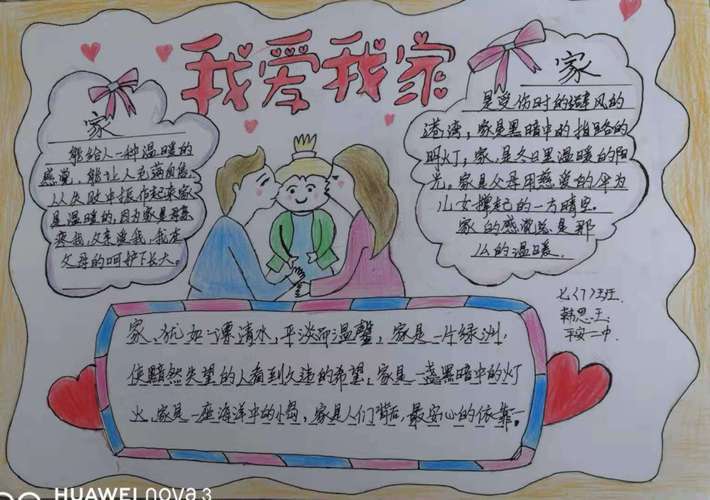 我爱我家
家
能给人一种温暖的
感觉,能让人充满自信
从失败中振作起来家
是温暖的,因为家是母亲
疼我,父亲爱我,我在
父母的呵护下长大。
家
是受伤时的避风的
港湾,家是黑暗中的指路的
明灯,家,是冬日里温暖的阳
光,家是父母用慈爱的伞为
儿女撑起的一方晴空。
家的感觉总是那
么的温暖.
七〈7〉班.
韩思
平安一中.
家、犹如一泉清水,平淡而温馨,家是一片绿洲.
使黯然失望的人看到久违的希望,家是一盏黑暗中的灯
火,家是一座海洋中的小岛,家是人们背后,最安心的依靠一。
HUAWEI nova 3